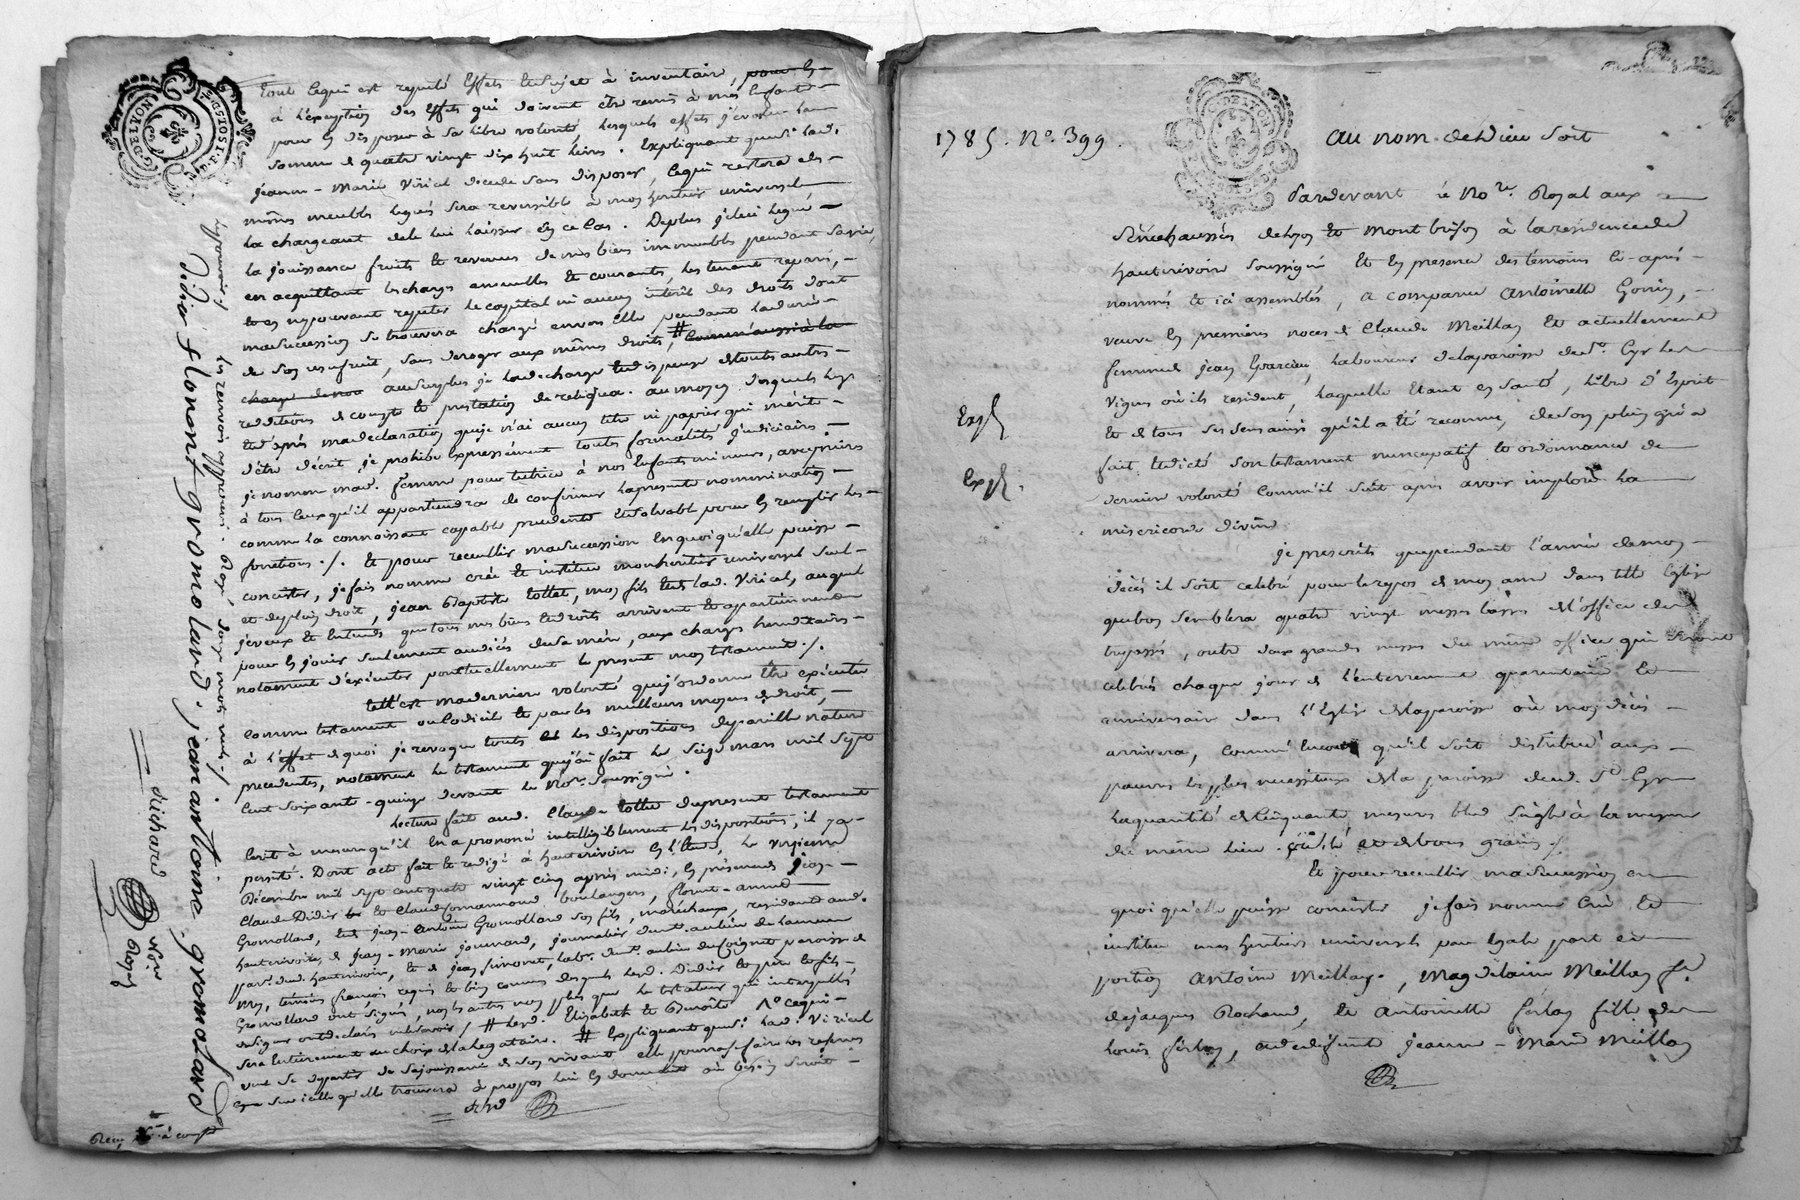 tout ce qui est reputé effets et sujet à inventaire, pour les
à l'exception des effets qui doivent être remis à mes Enfants
pour en disposer à sa libre volonté, lesquels effets j'évalue la
somme de quatre vingt dix huit livres. Expliquant que si lad.
jeanne-Marie Virical decede sans disposer, ce qui restera des
mêmes meubles legués sera reversible à mon heritier universel
la chargeant de le lui laisser en ce cas. Deplus je lui legue
la jouissance fruits et revenus de mes biens immeubles pendant sa vie,
en acquittant les charges annuelles et courantes, les tenant reparé,
et en ne pouvant repeter le capital ni aucun intérêt des droits dont
ma succession se trouvera chargé envers elle pendant la durée
de son usufruit, sans deroger aux mêmes droits, # comme aussi à la
charge de nos au surplus je la decharge et dispense de toutes autres
redditions de compte et prestation de reliqua. au moyen desquels legs
et d'après ma declaration que je n'ai aucun titre ni papier qui mérite
d'être décrit, je prohibe expressément toutes formalités judiciaires
je nomme mad. femme pour tutrice à nos Enfants mineurs, avec prieres
à tous ceux qu'il appartiendra de confirmer la presente nomination
comme la connoissant capable prudente et solvable pour en remplir les
fonctions ./. Et pour recueillir ma succession en quoi qu'elle puisse
concister, je fais nomme crée et institue mon heritier universel seul
et de plein droit, jean Baptiste tollet, mon fils et de lad. Virical, auquel
je veux et entends que tous mes biens et droits arrivent et apartiennent
pour en jouir seulement au décès de sa mère, aux charges hereditaires
notament d'exécuter pontuellement le present mon testament ./.
telle est ma derniere volonté que j'ordonne être exécutée
comme testament ou codicile et par les meilleurs moyens de droit,
à l'effet de quoi je revoque toutes les dispositions de pareille nature
precedentes, notament le testament que j'ai fait le seize mars mil sept
cent soixante-quinze devant le No.re soussigné.
Lecture faite aud. Claude tollet du present testament
écrit à mesure qu'il en a prononcé intelligiblement les dispositions, il y a
persisté. Dont acte fait et redigé à hauterivoire en l'étude, le vingtieme
Décembre mil sept cent quatre vingt cinq après midi, en présence de jean
Claude Didier et Claude boulangers, florent-
Gromollard, et de jean-antoine Gromollard son fils, maréchaux, residants aud.
hauterivoire, de jean-Marie journalier
par. dud. hauterivoire, et de jean simonet, lab. paroisse de
temoins requis et bien connus desquels led. Didier et
Gromollard ont signé, non les autres non plus que le testateur qui interpellés
de signer ont declaré ne le savoir / # led. Elizabeth et Benoîte
sera entierement au choix de la legataire. # Expliquant que si lad. Virical
veut se departir de sa jouissance de son vivant elle pourra faire les reserves
que sur icelle qu'elle trouvera à propos lui en donnant
les renvois approuvés. Rayé douze mots nuls ./.
didier florent gromolard. jean antoine gromolard
Richard
No.re Royal
à compte
G. DE LYON
1785. No. 399.
G. DE LYON
au nom de Dieu soit
Pardevant le No.re Royal aux
sénéchaussées de Lyon et Montbrison à la residence de
hauterivoire soussigné et en presence des temoins ci-après
nommés et ici assemblés, a comparu antoinette Gonin,
veuve en premieres noces de Claude Meillan et actuellement
femme de jean laboureur de la paroisse de St. Cyr les
vignes où ils resident, laquelle étant en santé, libre d'Esprit
et de tous ses sens ainsi qu'il a été reconnu, de son plein gré a
fait et dicté son testament nuncupatif et ordonnance de
derniere volonté comme il suit après avoir imploré la
misericorde divine
Exp.
Exp.
je prescrits que pendant l'année de mon
décès il soit celebré pour le repos de mon ame dans telle Eglise
que bon semblera quatre vingt messes basses de l'office des
trepassés, outre deux grandes messes du même office qui seront
celebrées chaque jour de l'enterrement quarantaine et
anniversaire dans l'Eglise de la paroisse où mon décès
arrivera, comme encore qu'il soit distribué aux
pauvres les plus necessiteux de la paroisse dud. St. Cyr
la quantité de cinquante mesures bled seigle à la mesure
du même lieu. et de bons grains ./.
Et pour recueillir ma succession en
quoi qu'elle puisse concister je fais nomme crée et
institue mes heritiers universels par égale part et
portion antoine Meillan, Magdelaine Meillan f.e
de jacques Rochand, et antoinette ferlay fille de
louis ferlay, et de defunte jeanne-Marie Meillan